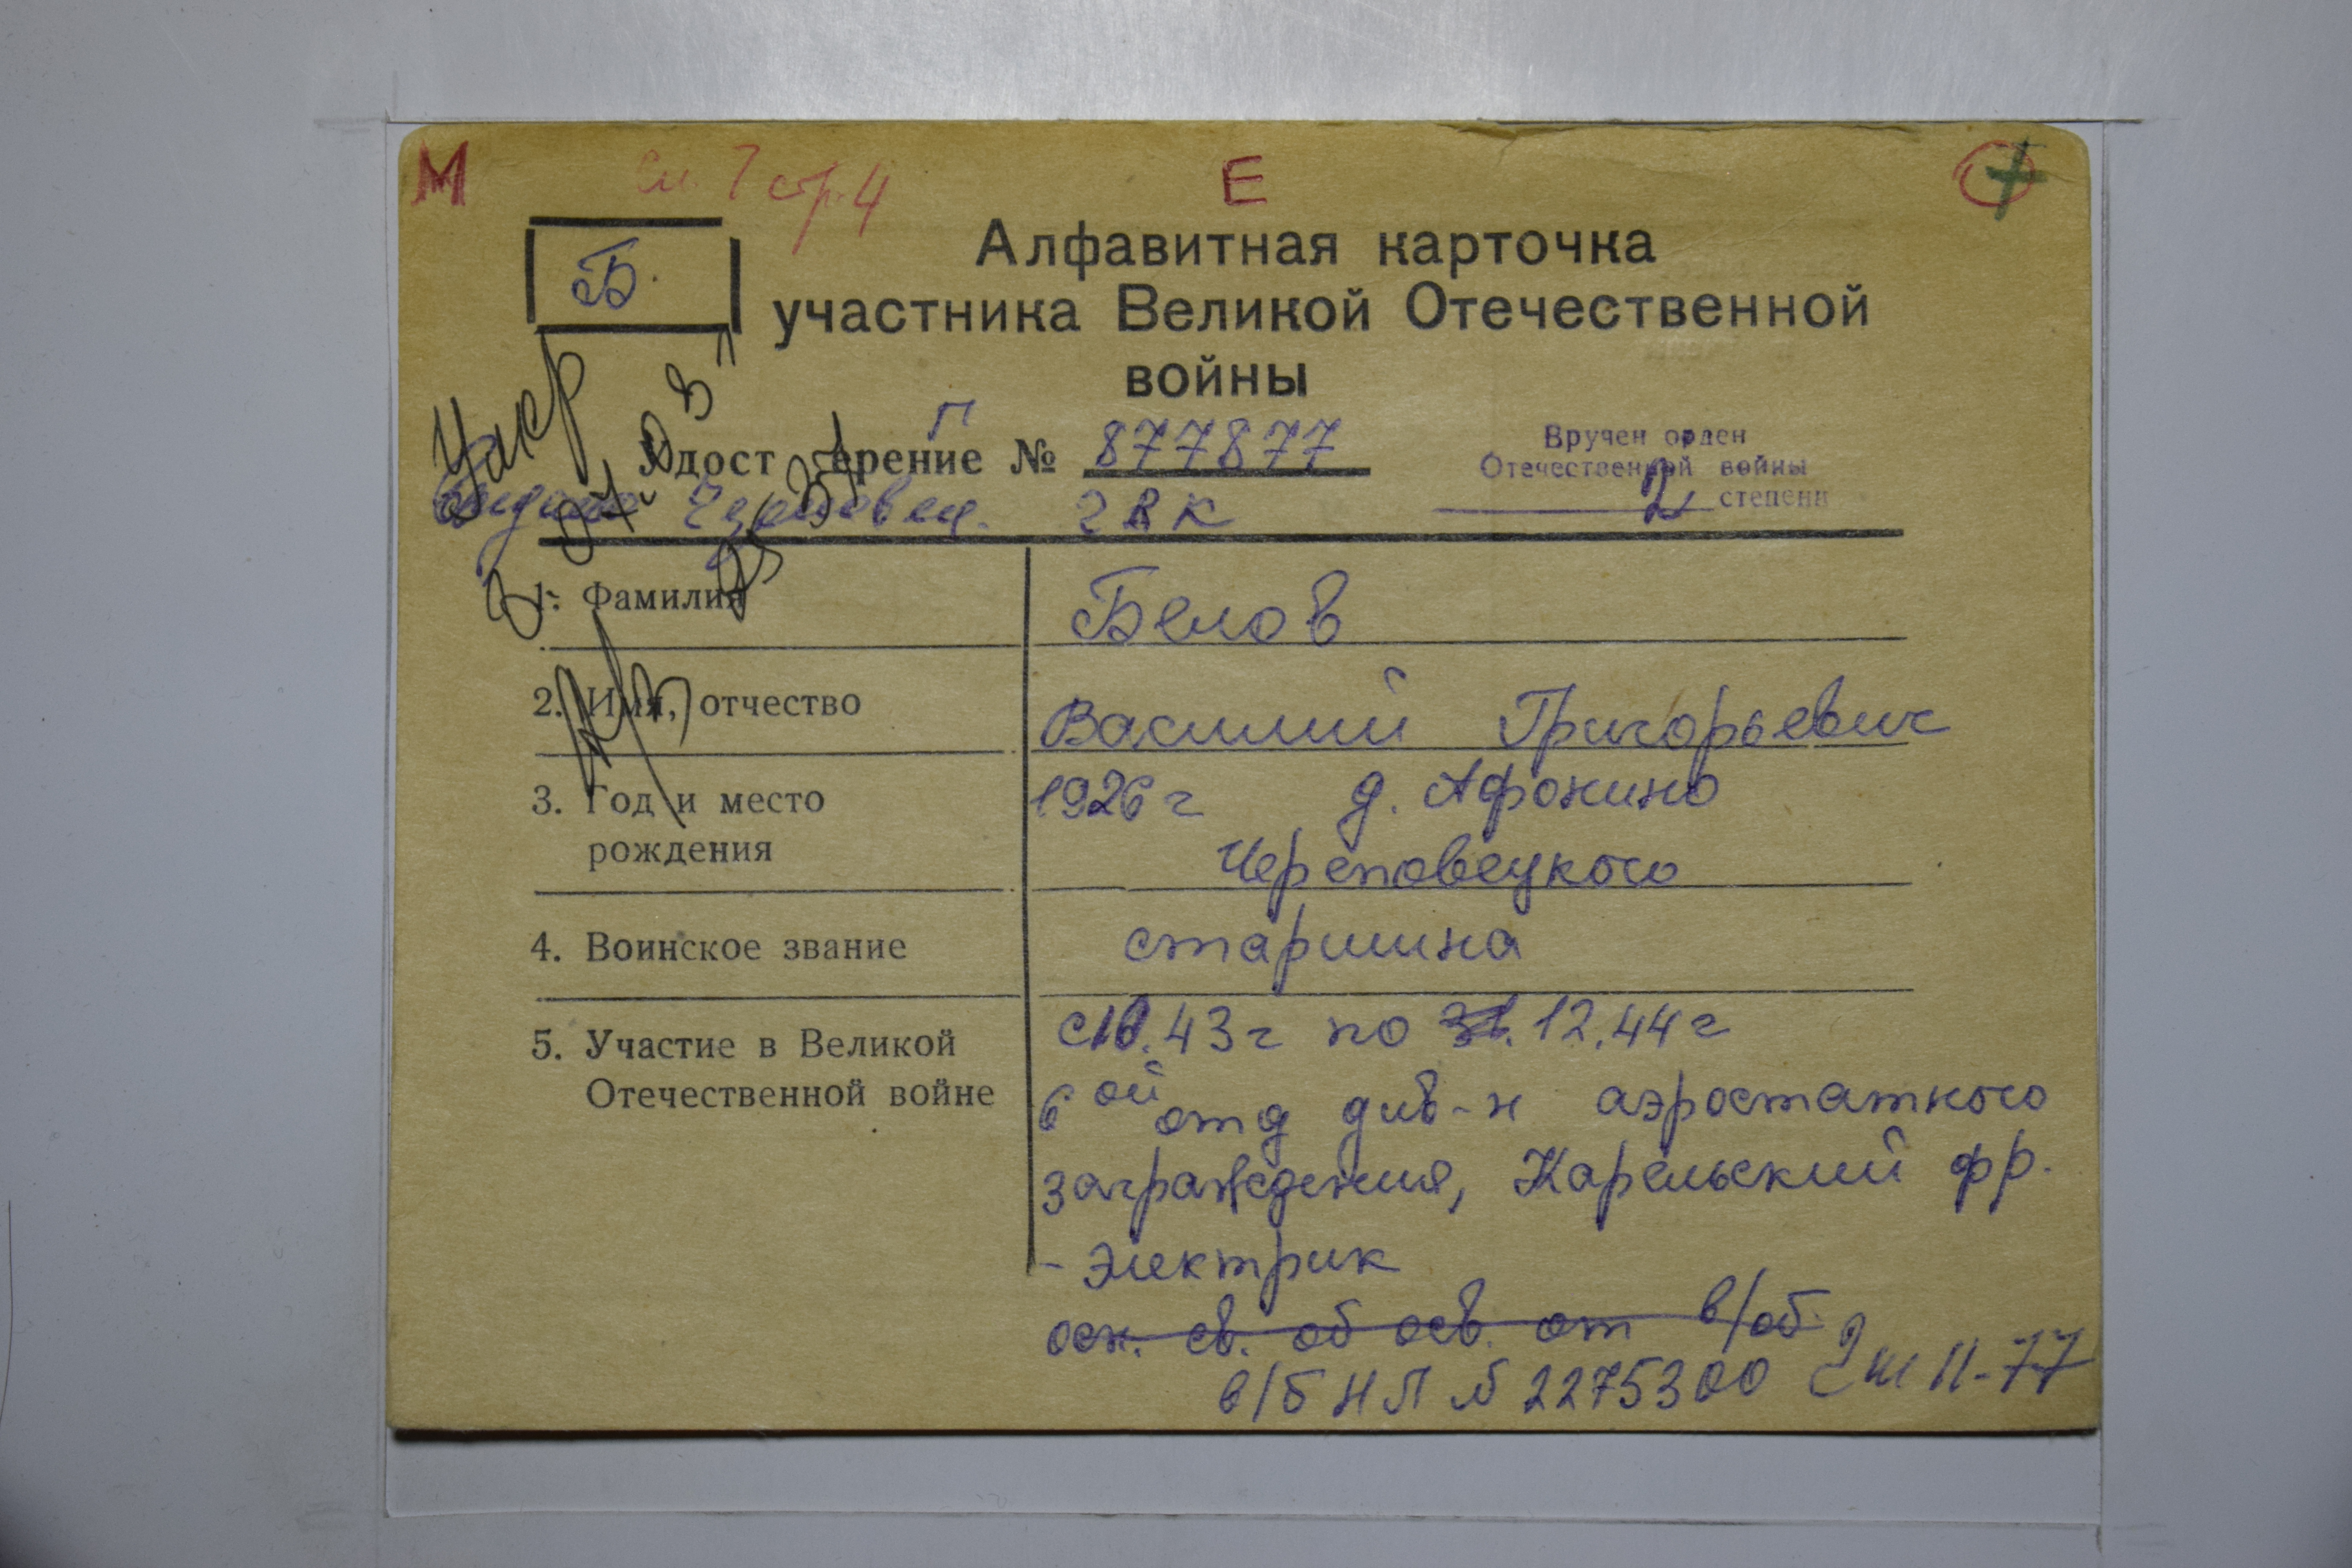 М см. 7 стр. 4 Е +
Б.
Алфавитная карточка
участника Великой Отечественной
войны
Г
Удостоверение № 877877
Вручен орден
Отечественной войны
2 степени
выдано Череповец. ГВК
Умер
1. Фамилия
Белов
2. Имя, отчество
Василий Григорьевич
3. Год и место
рождения
1926 г д. Афонино
Череповецкого
4. Воинское звание
старшина
5. Участие в Великой
Отечественной войне
с 10.43 г по 31.12.44 г
6 ой отд див-н аэростатного
заграждения, Карельский фр.
- электрик
осн. св. об осв. от в/об.
в/б НЛ № 2275300 2 ш 11-77